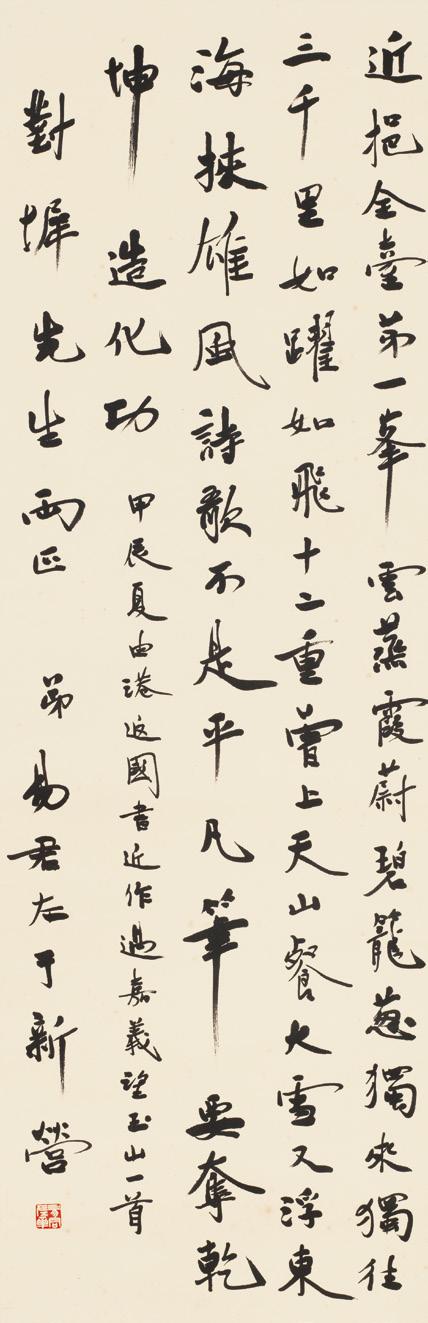 近挹全臺第一峯雲蒸霞蔚碧籠蔥獨來獨往
三千里如躍如飛十二重曾上天山餐大雪又浮東
海挾雄風詩歌不是平凡筆要奪乾
坤造化功甲辰夏由港返國書近作過嘉義望玉山一首
對墀先生兩正弟易君左于新營